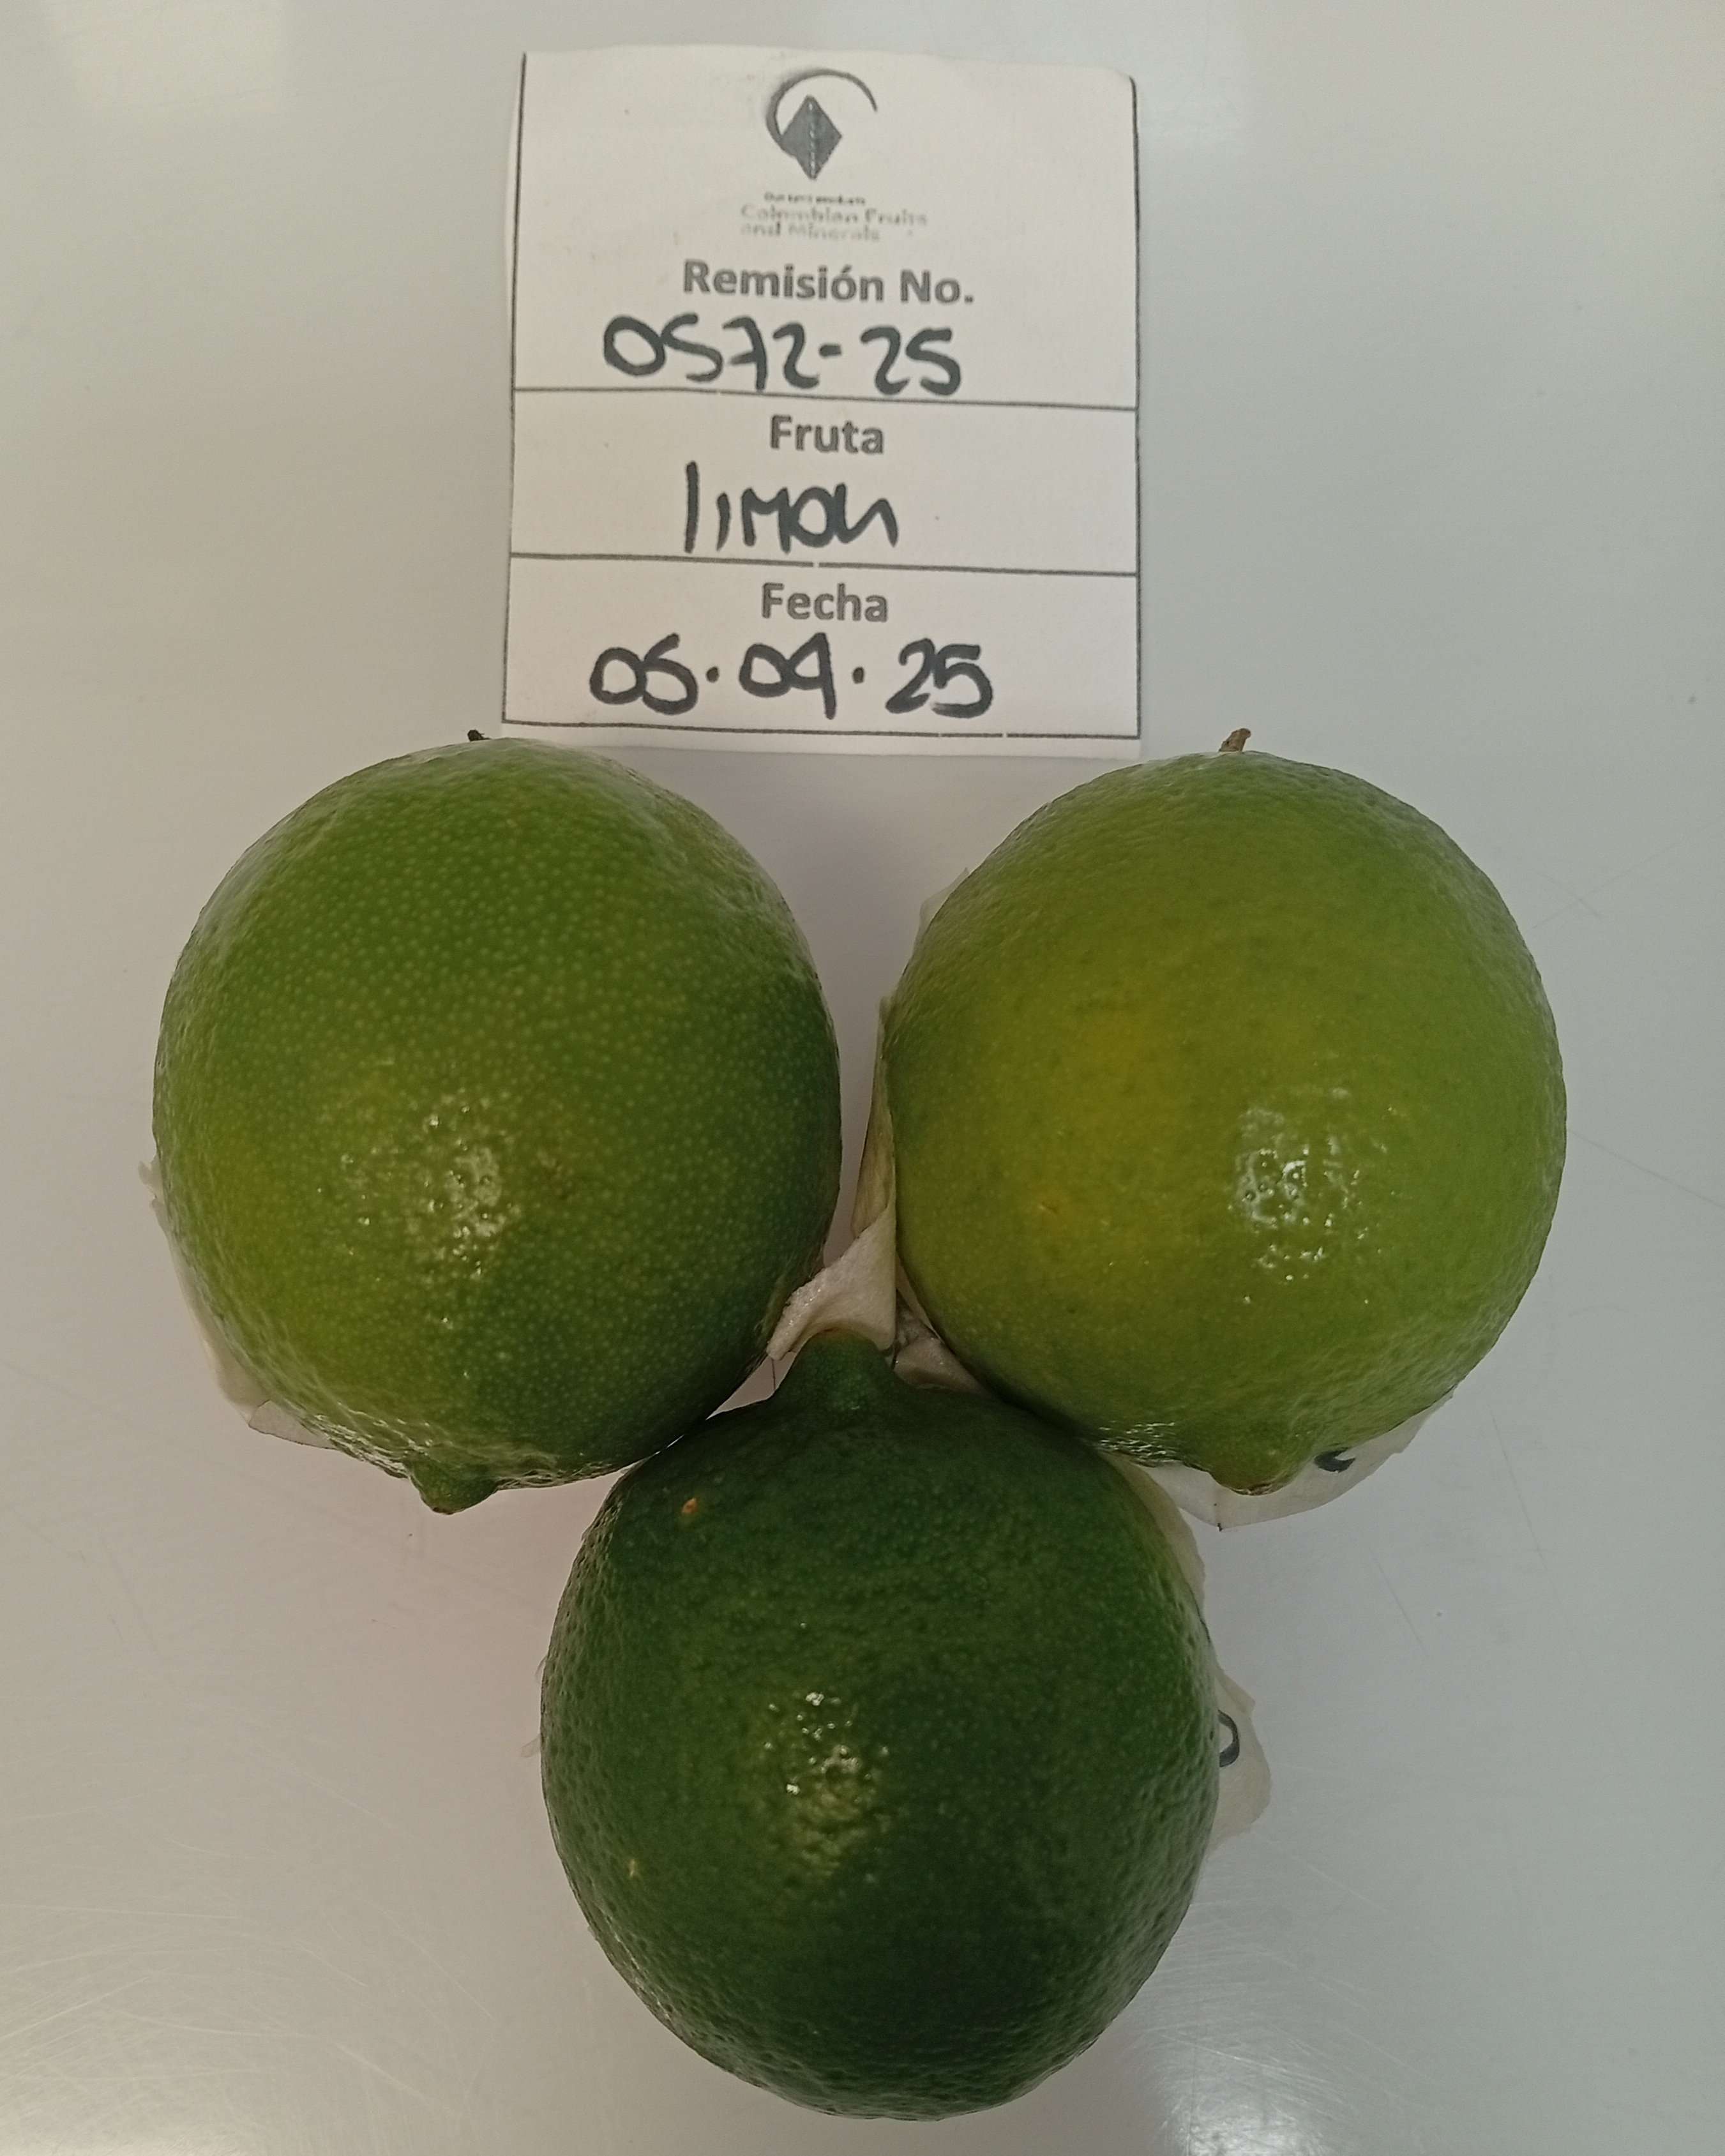 Colombian Fruits
and Minerals
Remisión No.
0572-25
Fruta
limon
Fecha
05.09.25
2